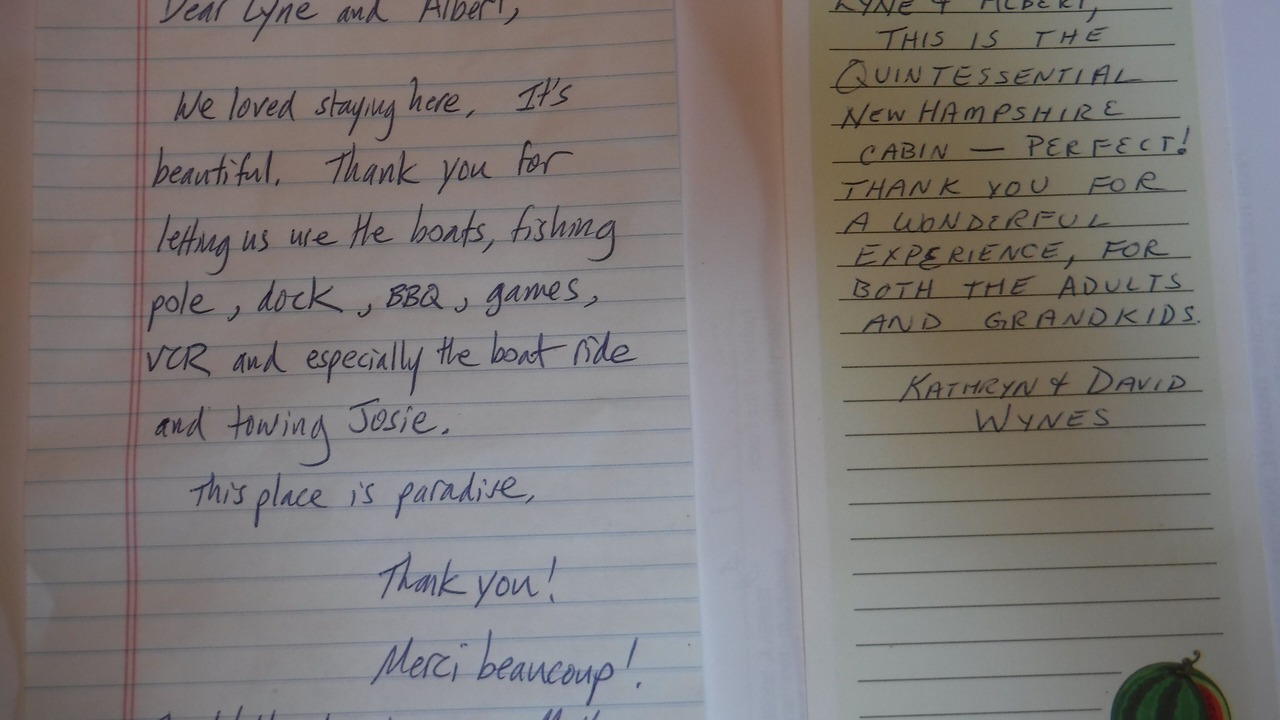 Dear Lyne and Albert,
We loved staying here. It's
beautiful. Thank you for
letting us use the boats, fishing
pole, dock, BBQ, games,
VCR and especially the boat ride
and towing Josie.
This place is paradise.
Thank you!
Merci beaucoup!
LYNE & ALBERT,
THIS IS THE
QUINTESSENTIAL
NEW HAMPSHIRE
CABIN — PERFECT!
THANK YOU FOR
A WONDERFUL
EXPERIENCE, FOR
BOTH THE ADULTS
AND GRANDKIDS.
KATHRYN & DAVID
WYNES